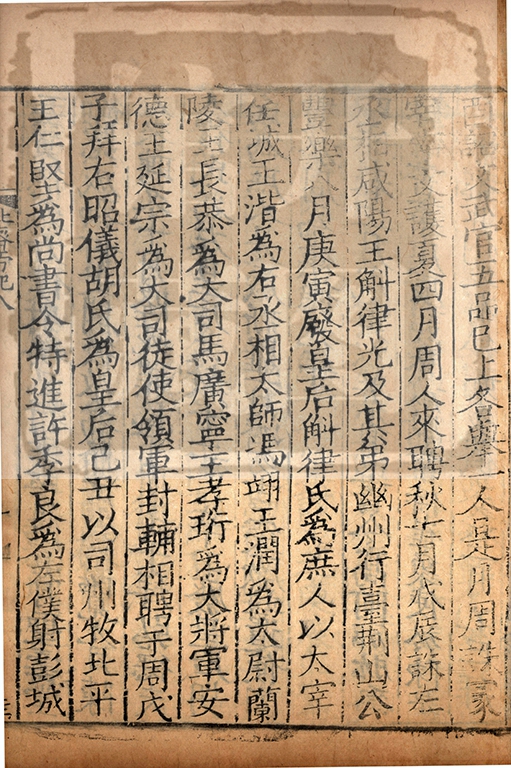 酉詔文武官五品已上各舉一人是月周誅冡
宰宇文護夏四月周人來聘秋七月戊辰誅左
丞相咸陽王斛律光及其弟幽州行臺荆山公
豐樂八月庚寅廢皇后斛律氏爲庶人以太宰
任城王湝爲右丞相太師馮翊王潤爲太尉蘭
陵王長恭爲大司馬廣寧王孝珩爲大將軍安
德王延宗爲大司徒使領軍封輔相聘于周戊
子拜右昭儀胡氏爲皇后己丑以司州牧北平
王仁堅爲尚書令特進許季良爲左僕射彭城